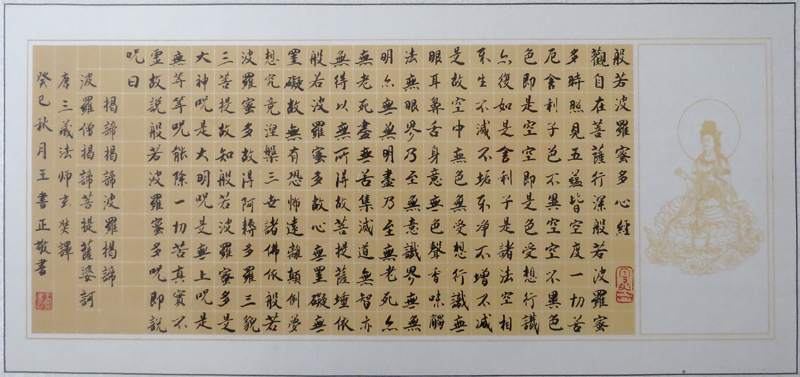 般若波羅蜜多心經
觀自在菩薩行深般若波羅蜜
多時照見五蘊皆空度一切苦
厄舍利子色不異空空不異色
色即是空空即是色受想行識
亦復如是舍利子是諸法空相
不生不滅不垢不淨不增不減
是故空中無色無受想行識無
眼耳鼻舌身意無色聲香味觸
法無眼界乃至無意識界無無
明亦無無明盡乃至無老死亦
無老死盡無苦集滅道無智亦
無得以無所得故菩提薩埵依
般若波羅蜜多故心無罣礙無
罣礙故無有恐怖遠離顛倒夢
想究竟涅槃三世諸佛依般若
波羅蜜多故得阿耨多羅三藐
三菩提故知般若波羅蜜多是
大神咒是大明咒是無上咒是
無等等咒能除一切苦真實不
虛故說般若波羅蜜多咒即說
咒曰
揭諦揭諦波羅揭諦
波羅僧揭諦菩提薩婆訶
唐三藏法師玄奘譯
癸巳秋月王書正敬書